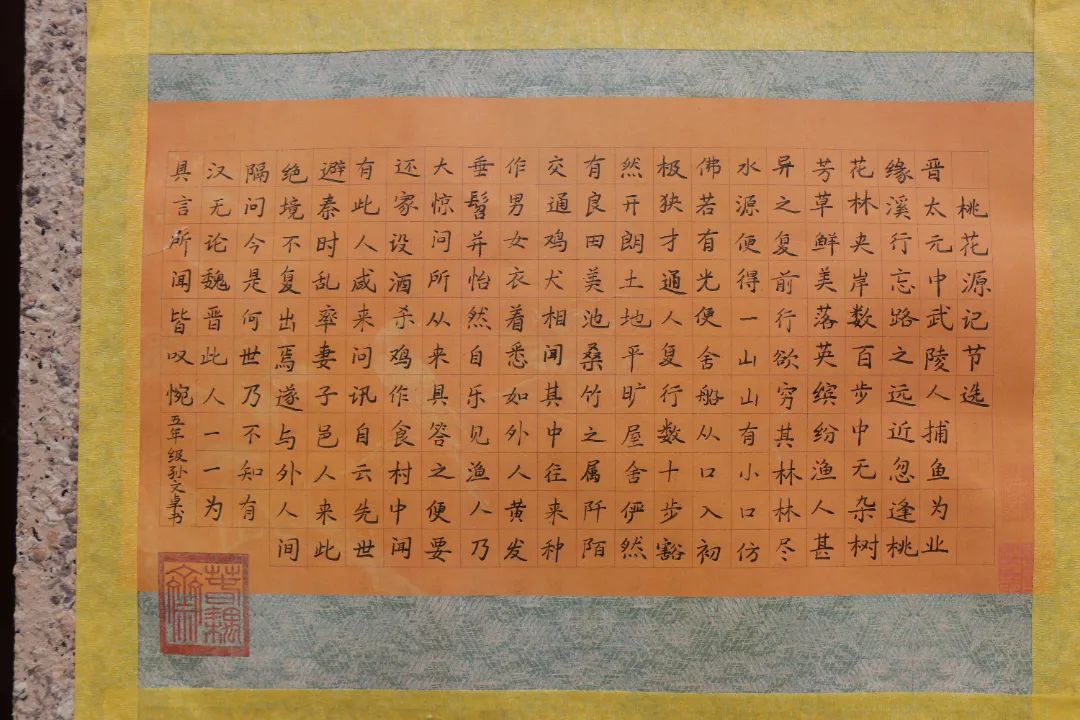 桃花源记节选
晋太元中武陵人捕鱼为业
缘溪行忘路之远近忽逢桃
花林夹岸数百步中无杂树
芳草鲜美落英缤纷渔人甚
异之复前行欲穷其林林尽
水源便得一山山有小口仿
佛若有光便舍船从口入初
极狭才通人复行数十步豁
然开朗土地平旷屋舍俨然
有良田美池桑竹之属阡陌
交通鸡犬相闻其中往来种
作男女衣着悉如外人黄发
垂髫并怡然自乐见渔人乃
大惊问所从来具答之便要
还家设酒杀鸡作食村中闻
有此人咸来问讯自云先世
避秦时乱率妻子邑人来此
绝境不复出焉遂与外人间
隔问今是何世乃不知有
汉无论魏晋此人一一为
具言所闻皆叹惋
五年级孙文卓书